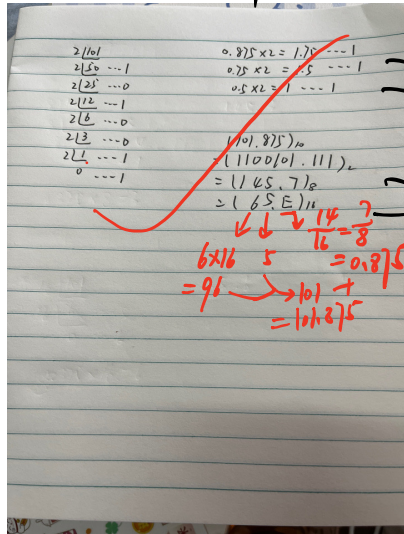 2 101
2 50 ···1
2 25 ···0
2 12 ···1
2 6 ···0
2 3 ···0
2 1 ···1
0 ···1
0.875×2=1.75 ···1
0.75×2=1.5 ···1
0.5×2=1 ···1
(101.875)₁₀
=(1100101.111)₂
=(145.7)₈
=(65.E)₁₆
14/16=7/8
6×16 5 =0.875
=96 101 +
=101.875